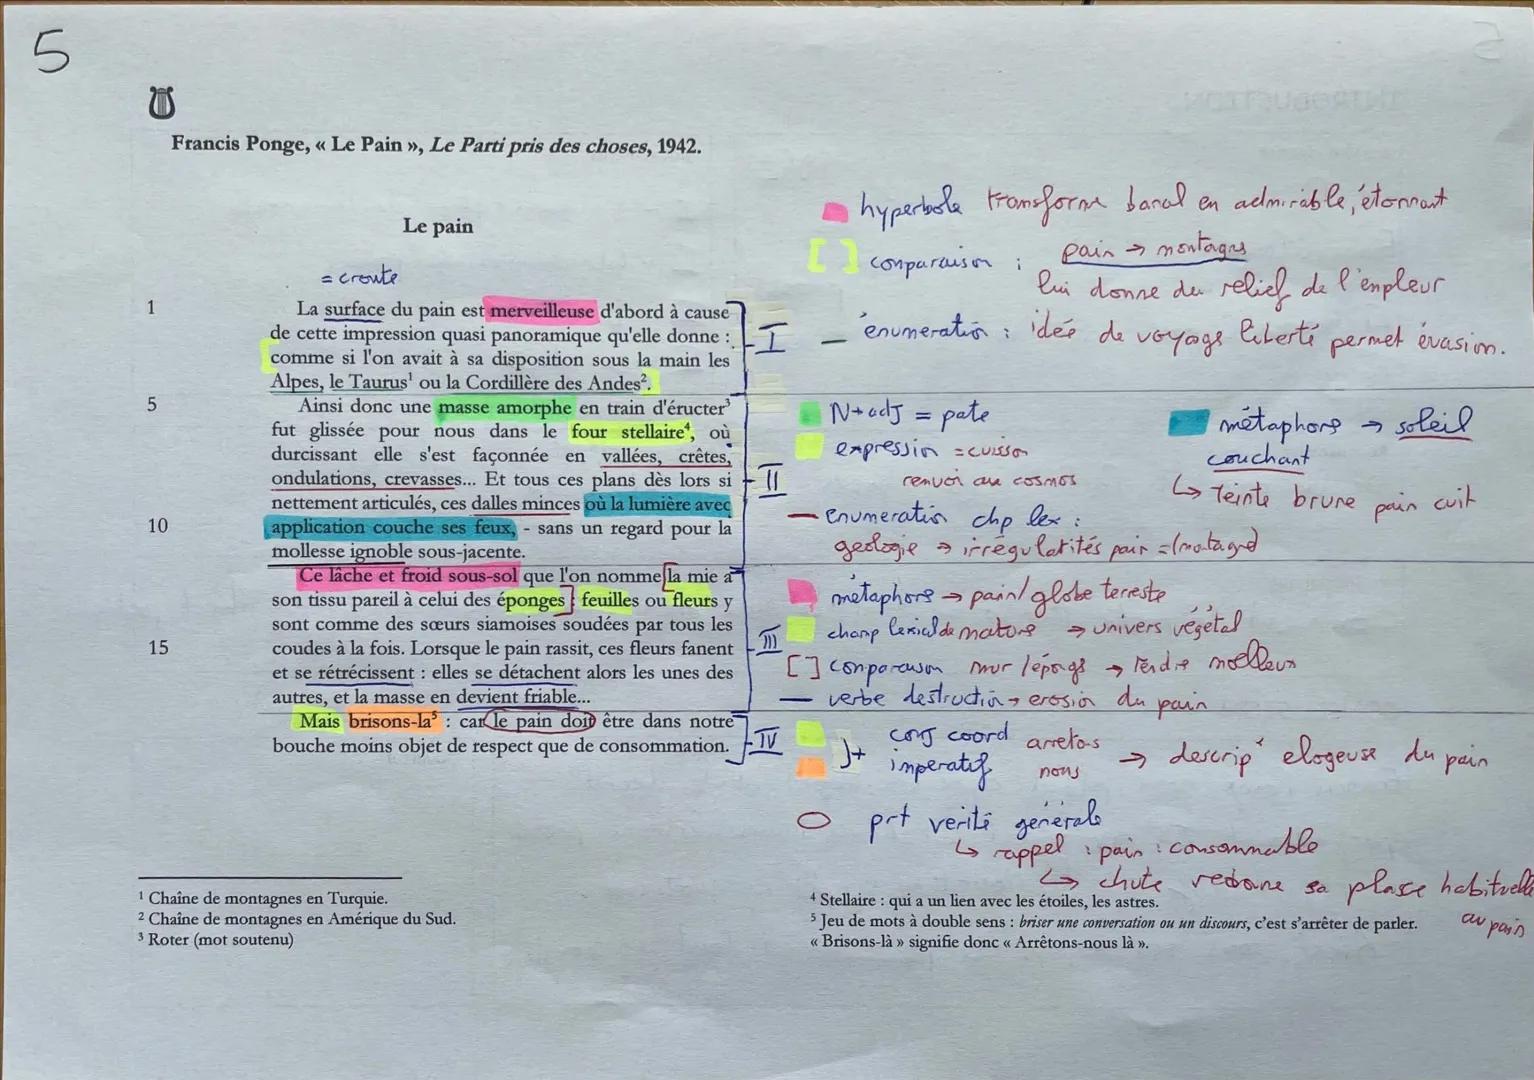 5
Francis Ponge, « Le Pain », Le Parti pris des choses, 1942.
Le pain
= croute
1 La surface du pain est merveilleuse d'abord à cause
de cette impression quasi panoramique qu'elle donne :
comme si l'on avait à sa disposition sous la main les
Alpes, le Taurus¹ ou la Cordillère des Andes².
I
5 Ainsi donc une masse amorphe en train d'éructer³
fut glissée pour nous dans le four stellaire⁴, où
durcissant elle s'est façonnée en vallées, crêtes,
ondulations, crevasses... Et tous ces plans dès lors si
nettement articulés, ces dalles minces où la lumière avec
10 application couche ses feux, - sans un regard pour la
mollesse ignoble sous-jacente.
II
Ce lâche et froid sous-sol que l'on nomme la mie a
son tissu pareil à celui des éponges : feuilles ou fleurs y
sont comme des sœurs siamoises soudées par tous les
15 coudes à la fois. Lorsque le pain rassit, ces fleurs fanent
et se rétrécissent : elles se détachent alors les unes des
autres, et la masse en devient friable...
III
Mais brisons-la⁵ : car le pain doit être dans notre
bouche moins objet de respect que de consommation.
IV
hyperbole transforme banal en admirable, étonnant
[ ] conparaison : pain → montagns
lui donne du relief de l'enpleur
énumeration : idée de voyage liberté permet évasion.
N+adj = pate
expression = cuisson
renvoi au cosmos
enumeration chp lex :
geologie → irrégularités pain = (montagne)
métaphore → soleil
couchant
↳ Teinte brune pain cuit
métaphore → pain/globe terrestre
champ lexical de nature → univers végétal
[ ] conparaison mur /éponge → tendre moelleux
verbe destruction → erosion du pain
conj coord
imperatif
arretons
nous
→ descrip° elogeuse du pain
prt verité générale
↳ rappel : pain : consommable
↳ chute redonne sa place habituelle
au pain
¹ Chaîne de montagnes en Turquie.
² Chaîne de montagnes en Amérique du Sud.
³ Roter (mot soutenu)
⁴ Stellaire : qui a un lien avec les étoiles, les astres.
⁵ Jeu de mots à double sens : briser une conversation ou un discours, c'est s'arrêter de parler.
« Brisons-là » signifie donc « Arrêtons-nous là ».